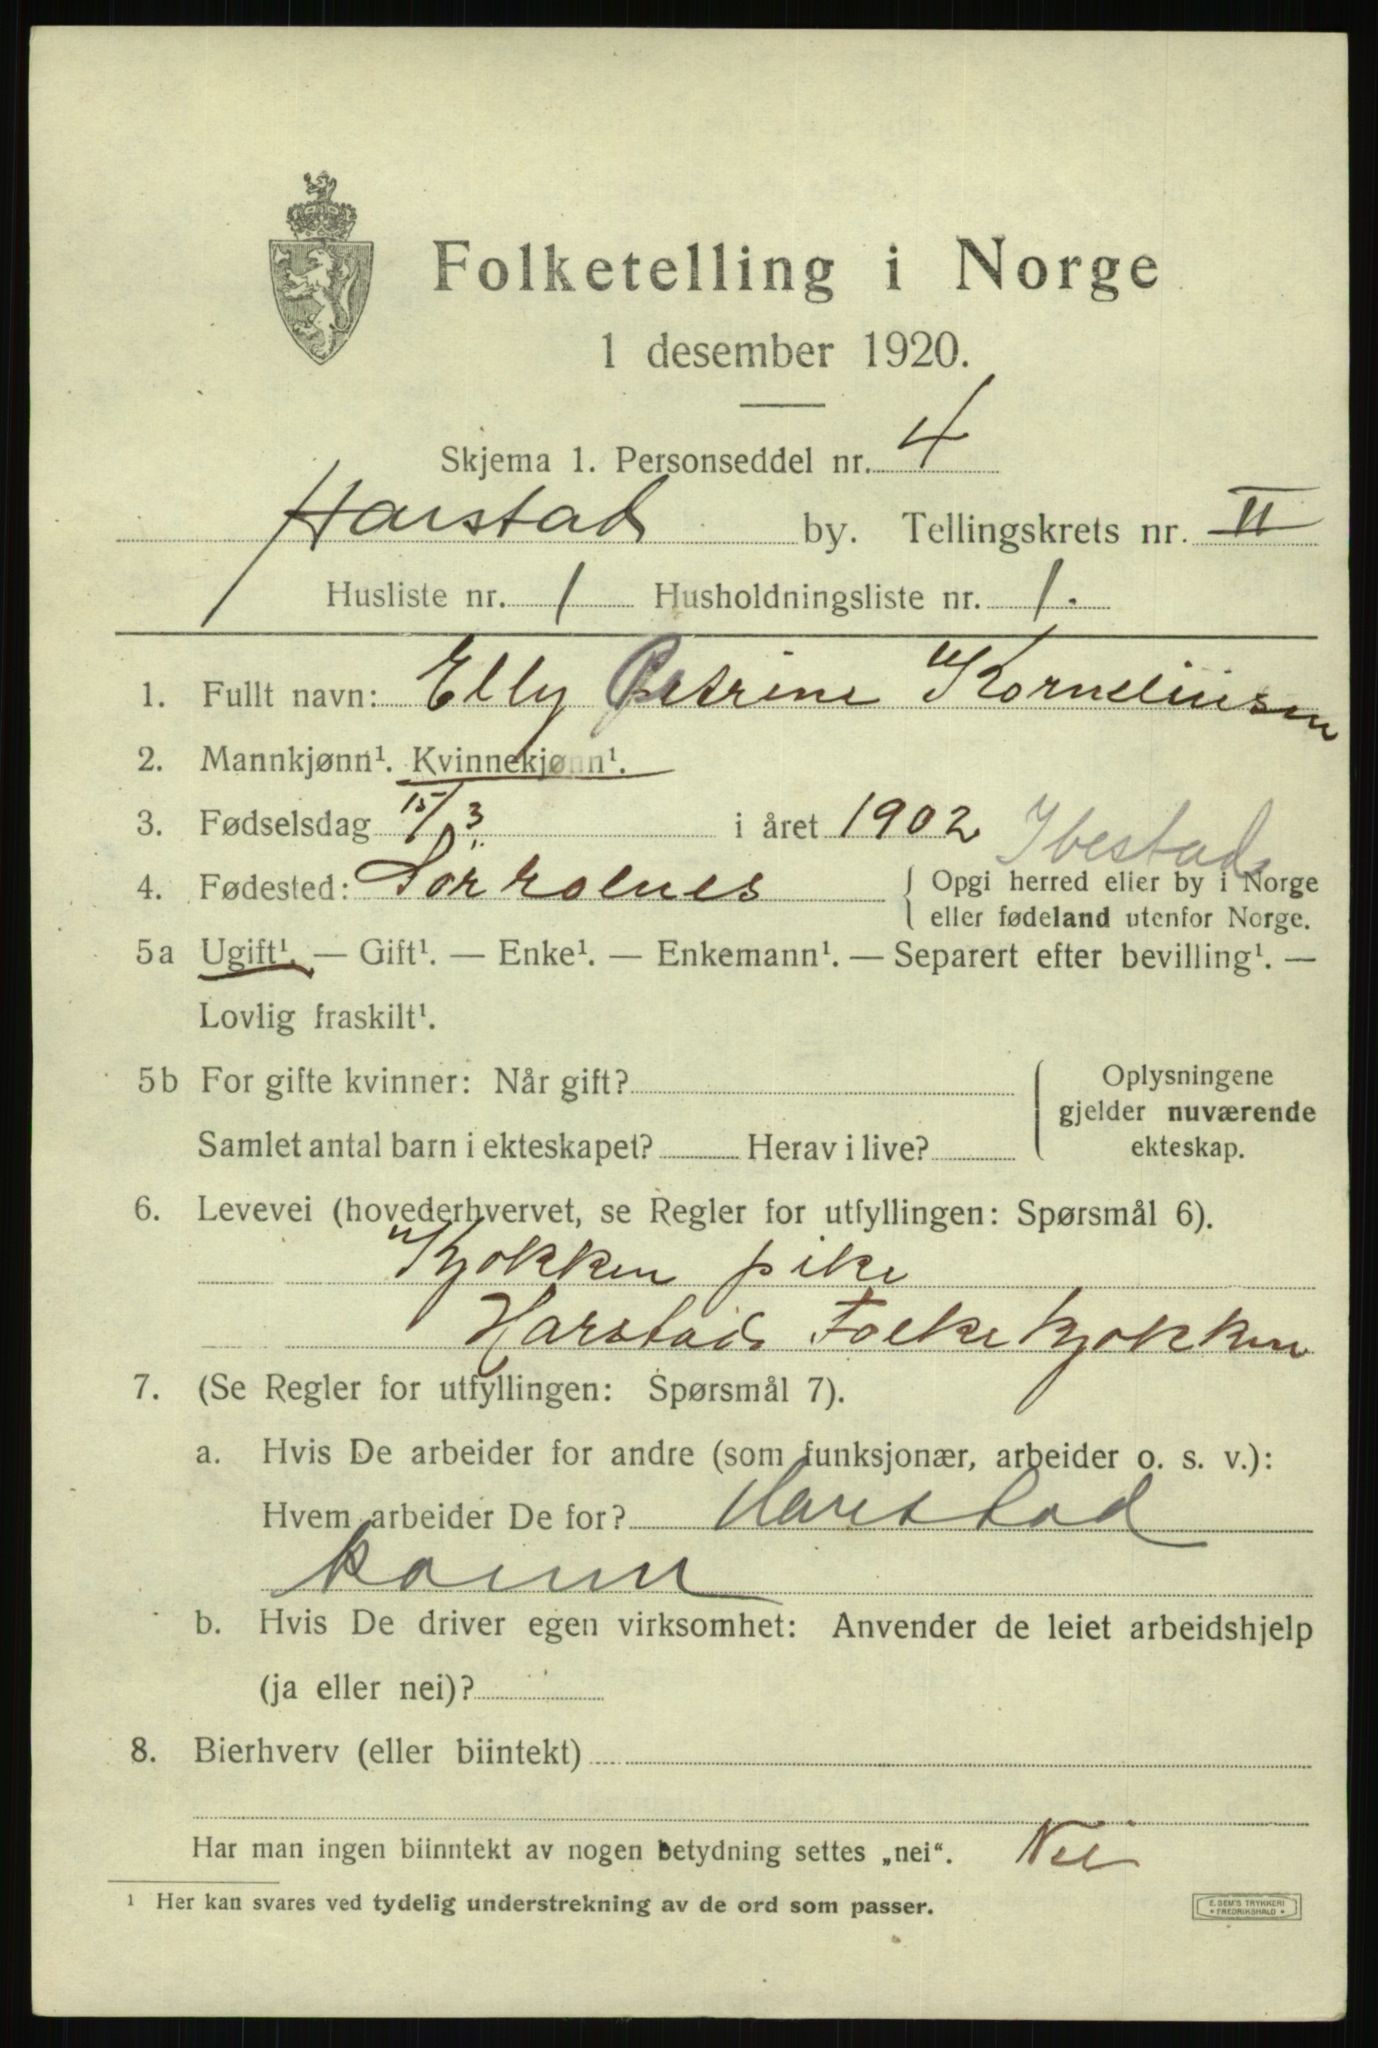 Folketelling i Norge
1 desember 1920.
Skjema 1. Personseddel nr. 4
Harstad by. Tellingskrets nr. II
Husliste nr. 1 Husholdningsliste nr. 1.
1. Fullt navn: Elly Petrine Korneliusen
2. Mannkjønn¹. Kvinnekjønn¹.
3. Fødselsdag 15/3 i året 1902 Ibestad
4. Fødested: Sørrolnes { Opgi herred eller by i Norge
eller fødeland utenfor Norge.
5a Ugift¹. — Gift¹. — Enke¹. — Enkemann¹. — Separert efter bevilling¹. —
Lovlig fraskilt¹.
5b For gifte kvinner: Når gift? { Oplysningene
gjelder nuværende
Samlet antal barn i ekteskapet? Herav i live? ekteskap.
6. Levevei (hovederhvervet, se Regler for utfyllingen: Spørsmål 6).
Kjøkken pike
Harstad Folkekjøkken
7. (Se Regler for utfyllingen: Spørsmål 7).
a. Hvis De arbeider for andre (som funksjonær, arbeider o. s. v.):
Hvem arbeider De for? Harstad
komm
b. Hvis De driver egen virksomhet: Anvender de leiet arbeidshjelp
(ja eller nei)?
8. Bierhverv (eller biintekt)
Har man ingen biinntekt av nogen betydning settes „nei“. Nei
¹ Her kan svares ved tydelig understrekning av de ord som passer.
E. SEM'S TRYKKERI
• FREDRIKSHALD •